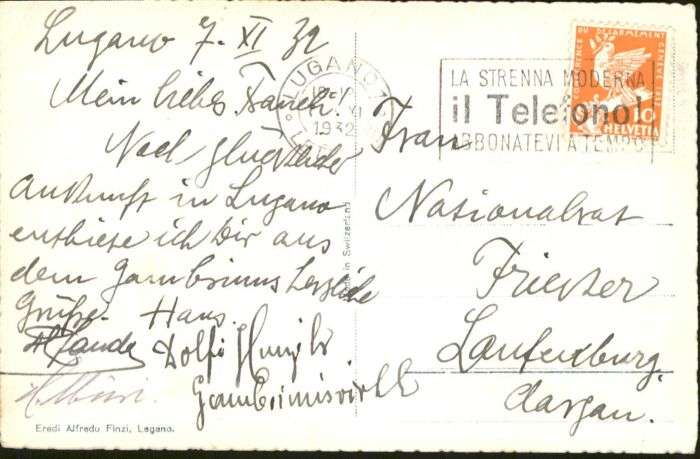 Lugano 7. XI 32
Mein liebes
Nach glücklicher
Ankunft in Lugano
entbiete ich Dir aus
dem Gambrinus herzliche
Grüsse. Hans
Dolfi
Gambrinuswirth
Eredi Alfredo Finzi, Lugano.
Made in Switzerland
LUGANO 1
1932
LA STRENNA MODERNA
il Telefono!
ABBONATEVI A TEMPO
DU DESARMEMENT
GENEVE 1932
10
HELVETIA
Frau
Nationalrat
Fricker
Laufenburg.
Aargau.